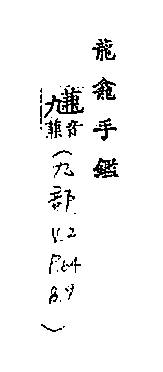 龍龕手鑑
音
九
（九部. V.2 P.64 B.9）